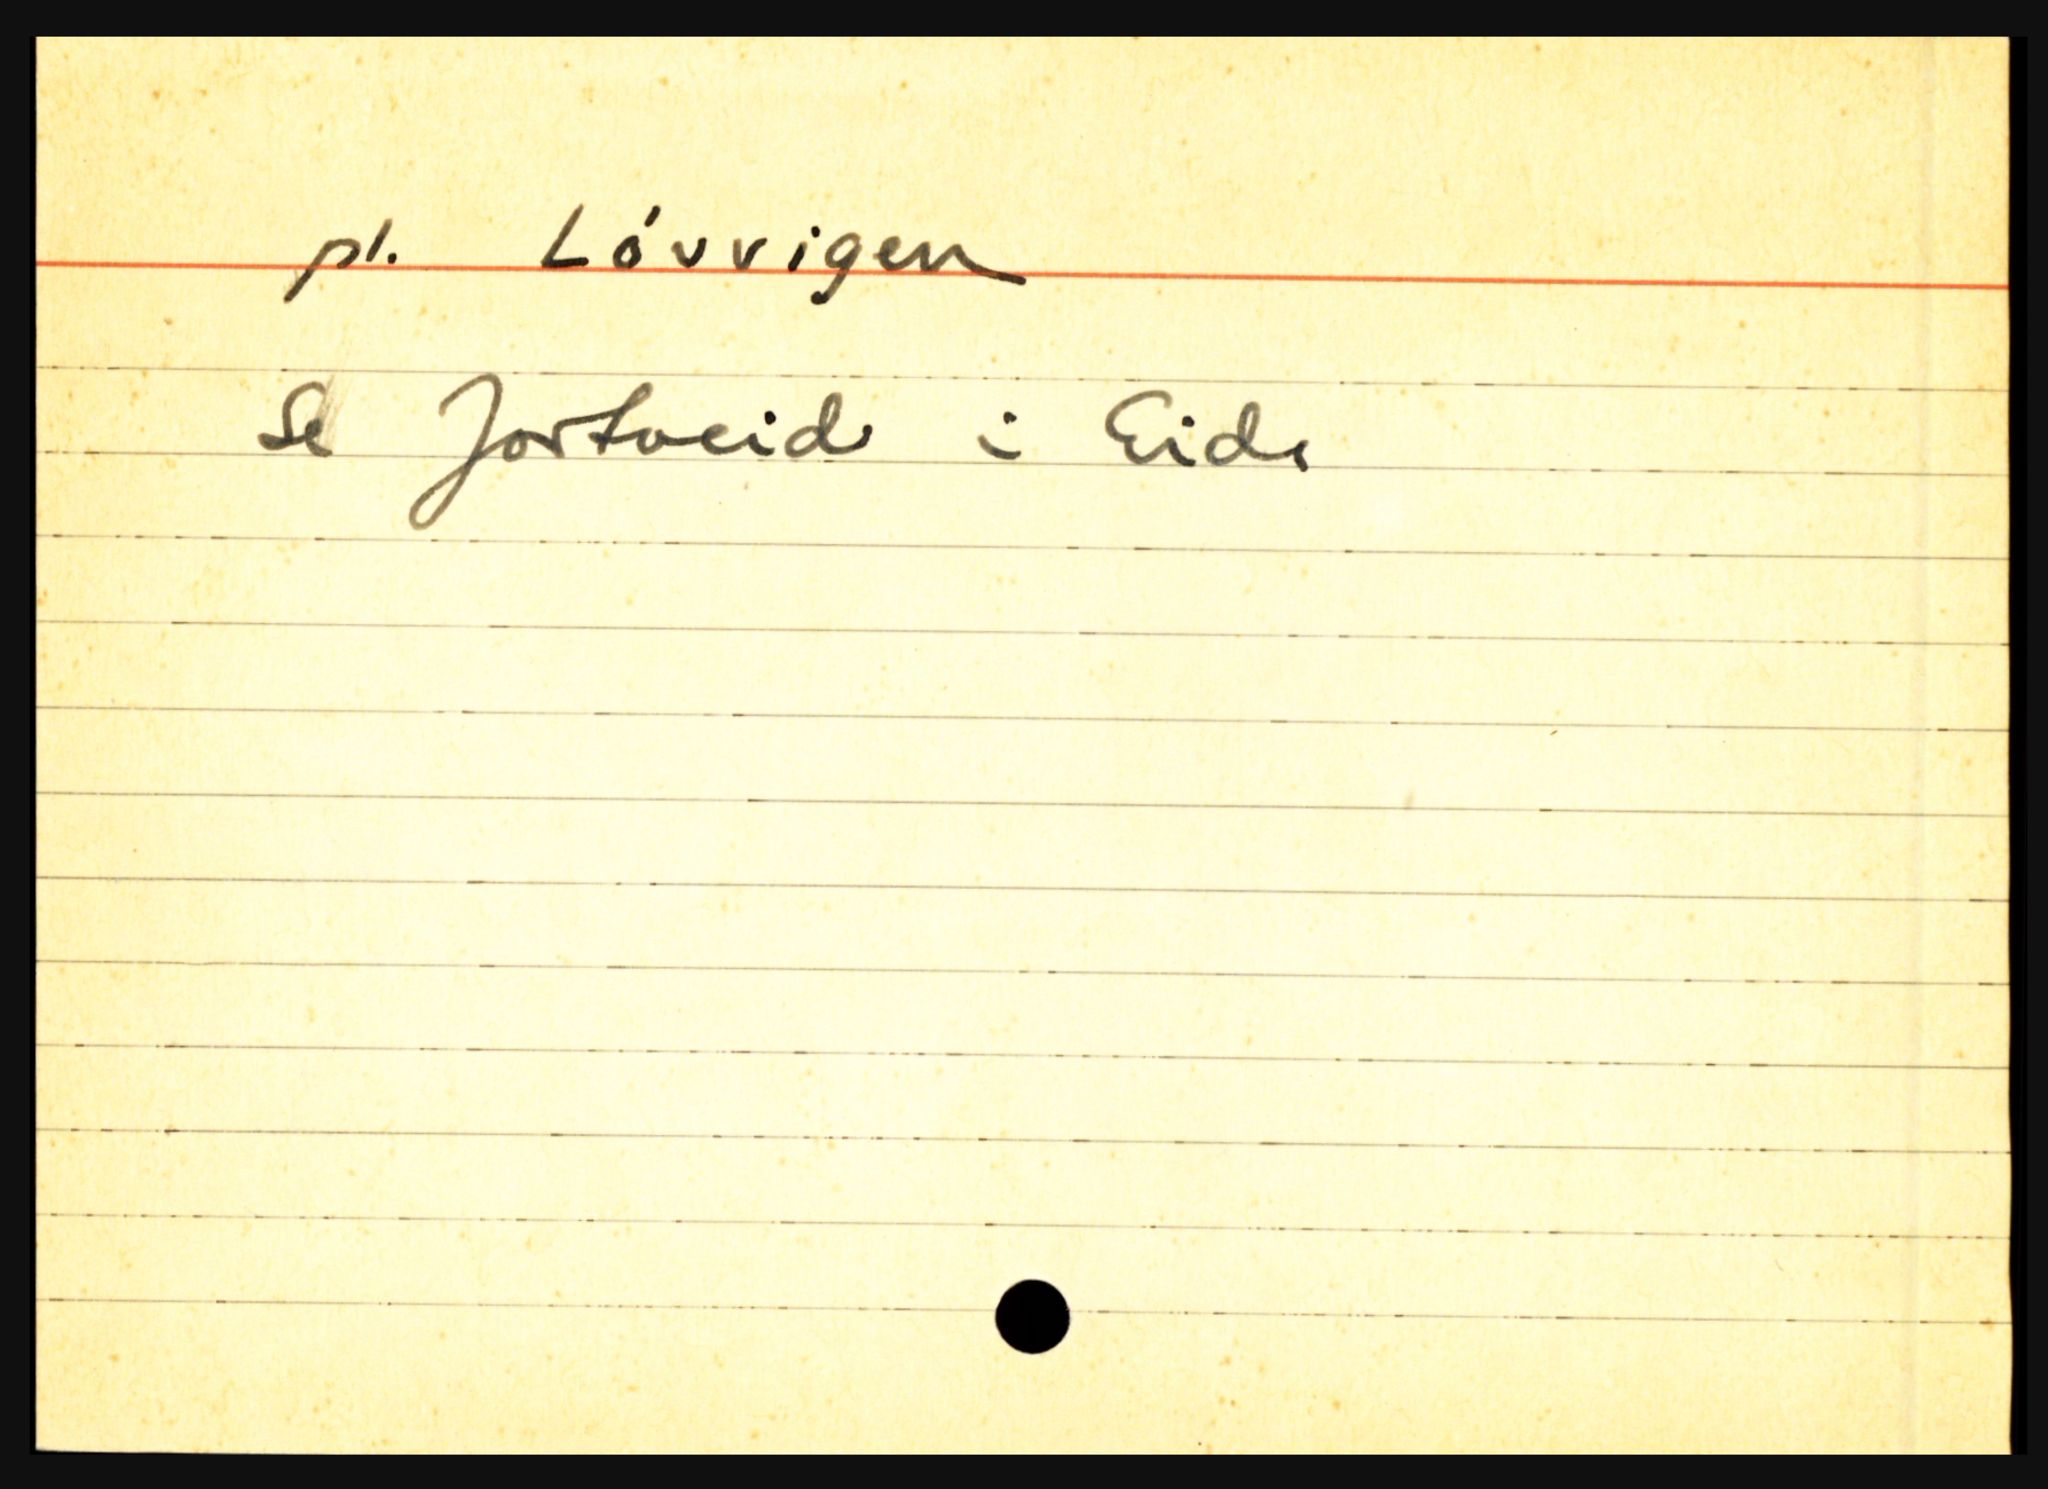 pl. Lóvvigen
Se Jortveid i Eide